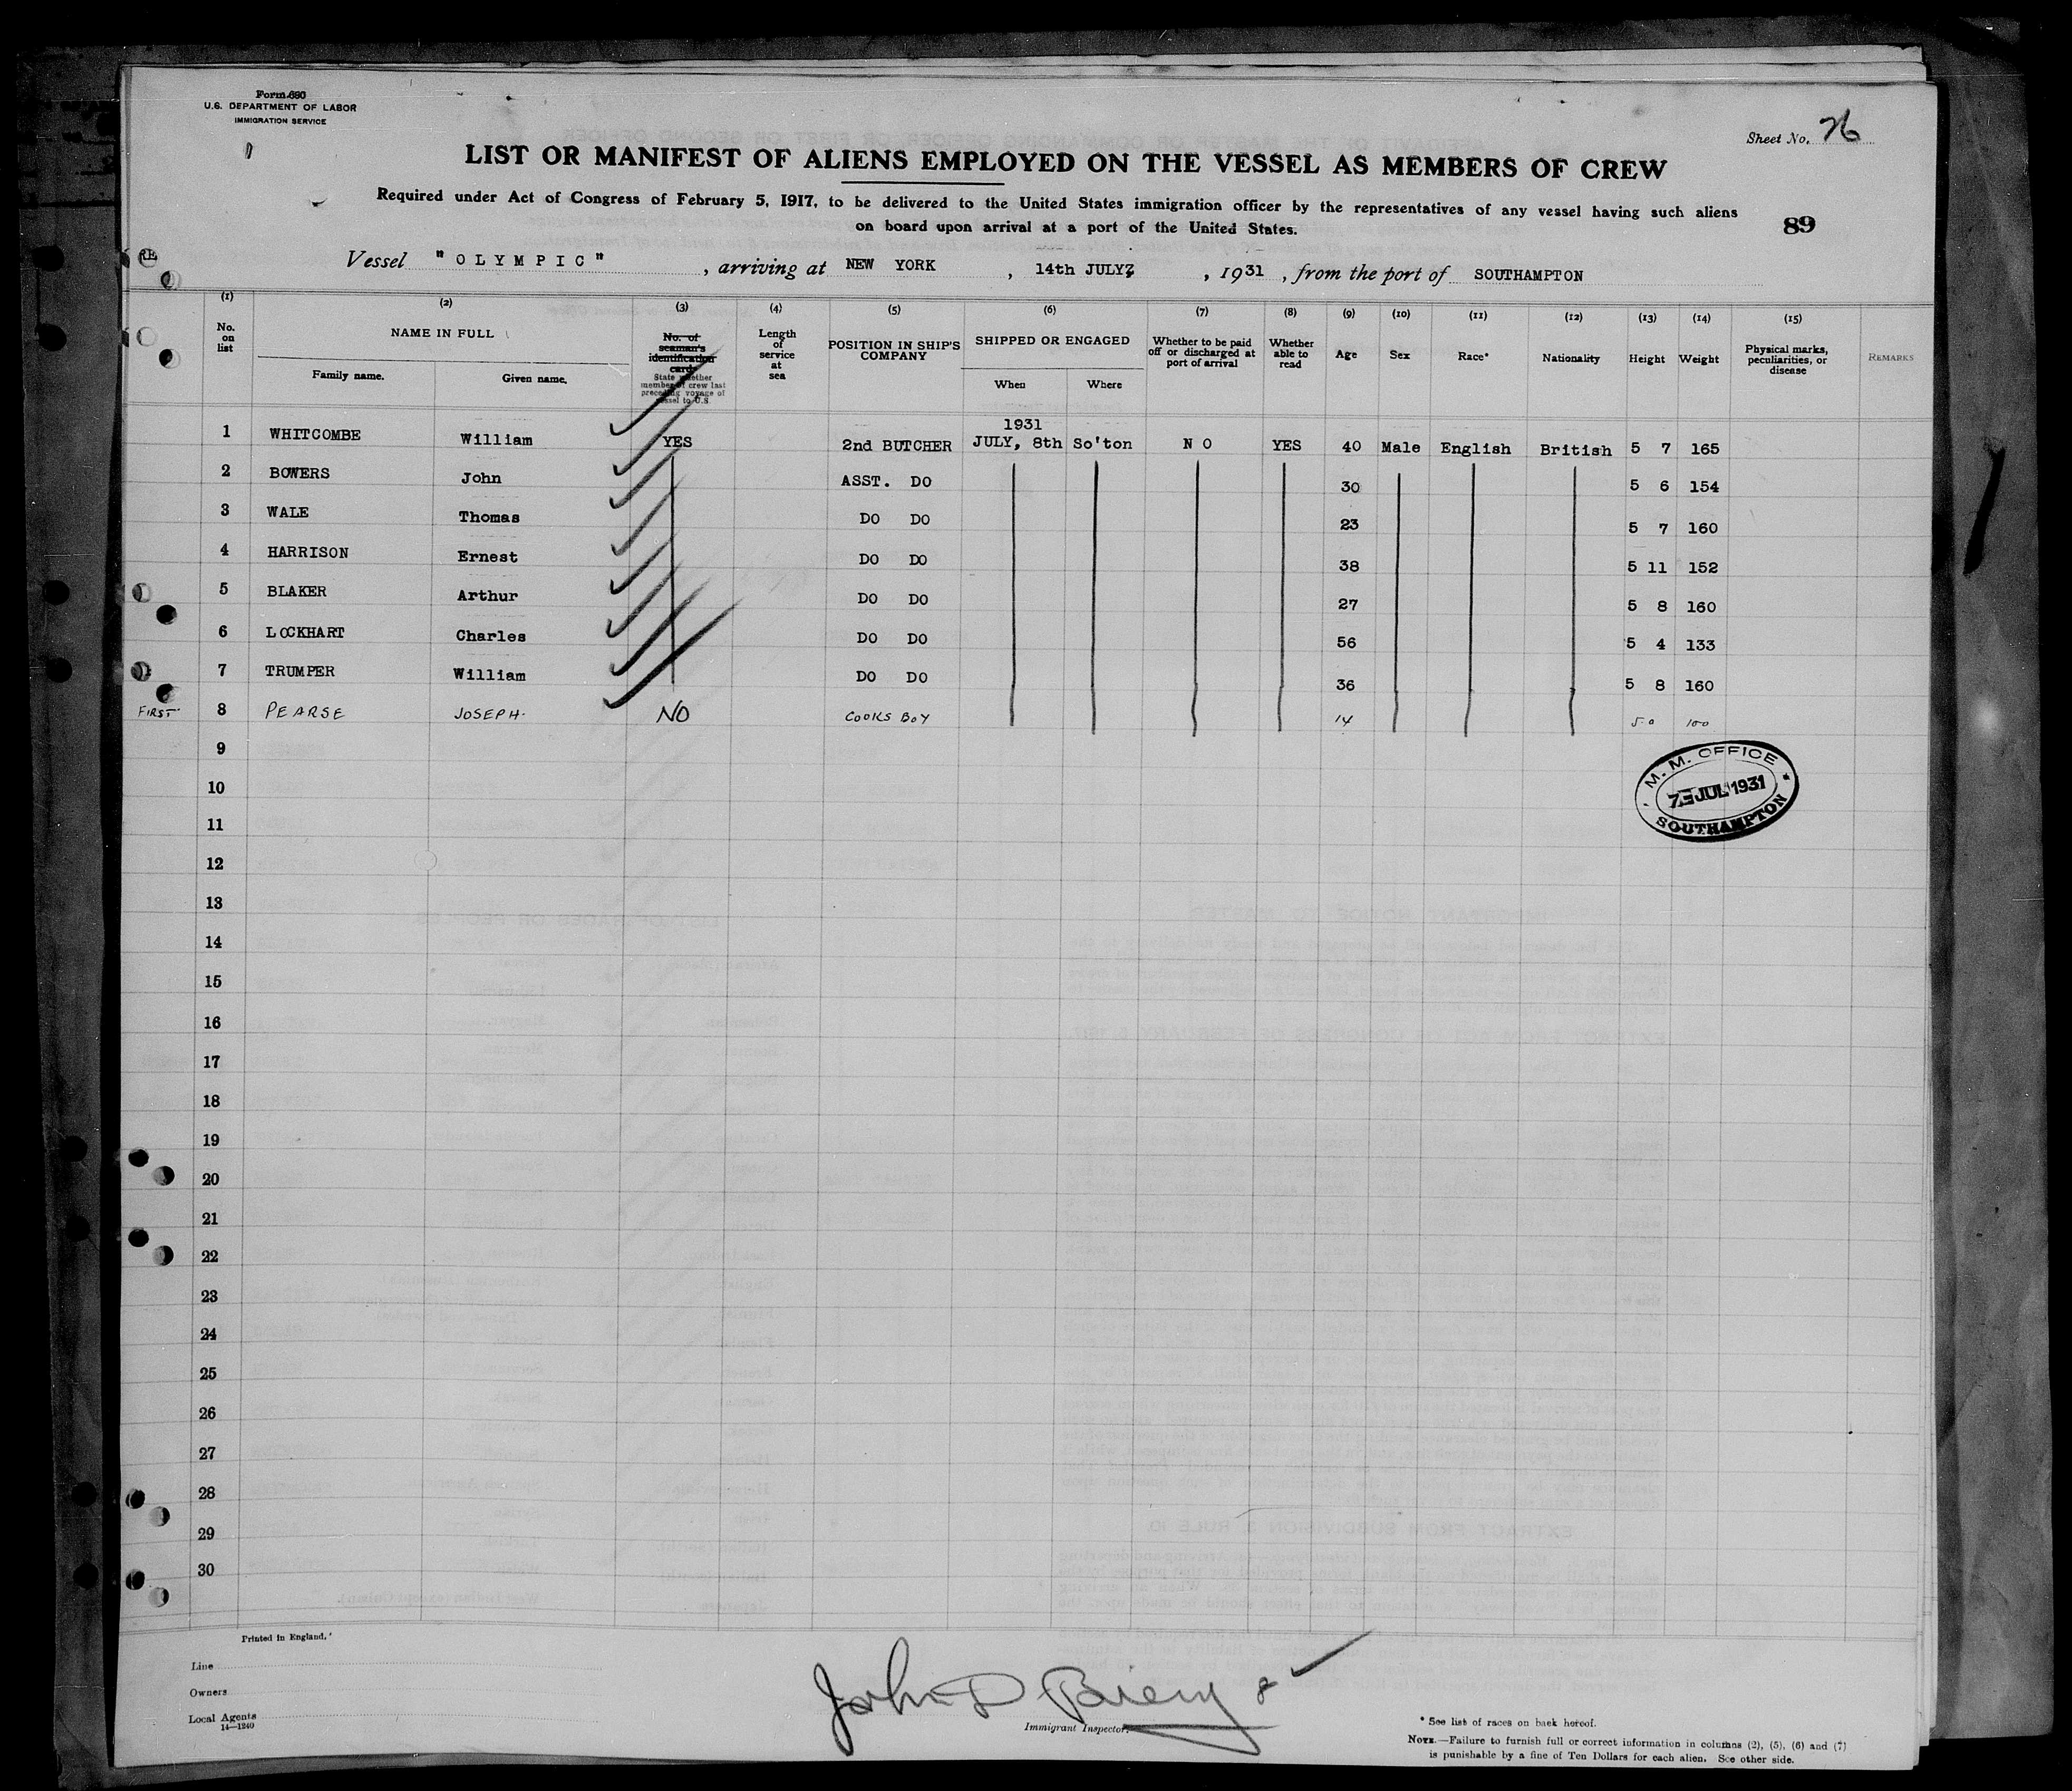 Form 680
U.S. DEPARTMENT OF LABOR
IMMIGRATION SERVICE
Sheet No. 26
LIST OR MANIFEST OF ALIENS EMPLOYED ON THE VESSEL AS MEMBERS OF CREW
Required under Act of Congress of February 5, 1917, to be delivered to the United States immigration officer by the representatives of any vessel having such aliens
on board upon arrival at a port of the United States.
89
Vessel "OLYMPIC", arriving at NEW YORK, 14th JULY, 1931, from the port of SOUTHAMPTON
(1) (2) (3) (4) (5) (6) (7) (8) (9) (10) (11) (12) (13) (14) (15)
No. on list
NAME IN FULL
Family name. Given name.
No. of seaman's identification card
State whether member of crew last preceding voyage of vessel to U.S.
Length of service at sea
POSITION IN SHIP'S COMPANY
SHIPPED OR ENGAGED
When Where
Whether to be paid off or discharged at port of arrival
Whether able to read
Age
Sex
Race*
Nationality
Height
Weight
Physical marks, peculiarities, or disease
REMARKS
1931
1 WHITCOMBE William YES 2nd BUTCHER JULY, 8th So'ton NO YES 40 Male English British 5 7 165
2 BOWERS John ASST. DO 30 5 6 154
3 WALE Thomas DO DO 23 5 7 160
4 HARRISON Ernest DO DO 38 5 11 152
5 BLAKER Arthur DO DO 27 5 8 160
6 LOCKHART Charles DO DO 56 5 4 133
7 TRUMPER William DO DO 36 5 8 160
FIRST 8 PEARSE JOSEPH. NO COOKS BOY 14 5 0 100
9
10
11
12
13
14
15
16
17
18
19
20
21
22
23
24
25
26
27
28
29
30
M. M. OFFICE
7 JUL 1931
SOUTHAMPTON
Printed in England.
Line
Owners
Local Agents
14—1240
John D 8
Immigrant Inspector.
* See list of races on back hereof.
NOTE.—Failure to furnish full or correct information in columns (2), (5), (6) and (7)
is punishable by a fine of Ten Dollars for each alien. See other side.